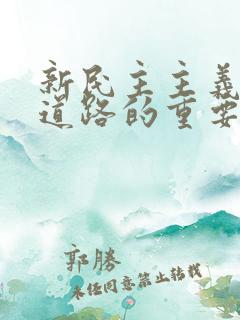 新民主主义
道路的重要
郭勝
未经同意禁止转载